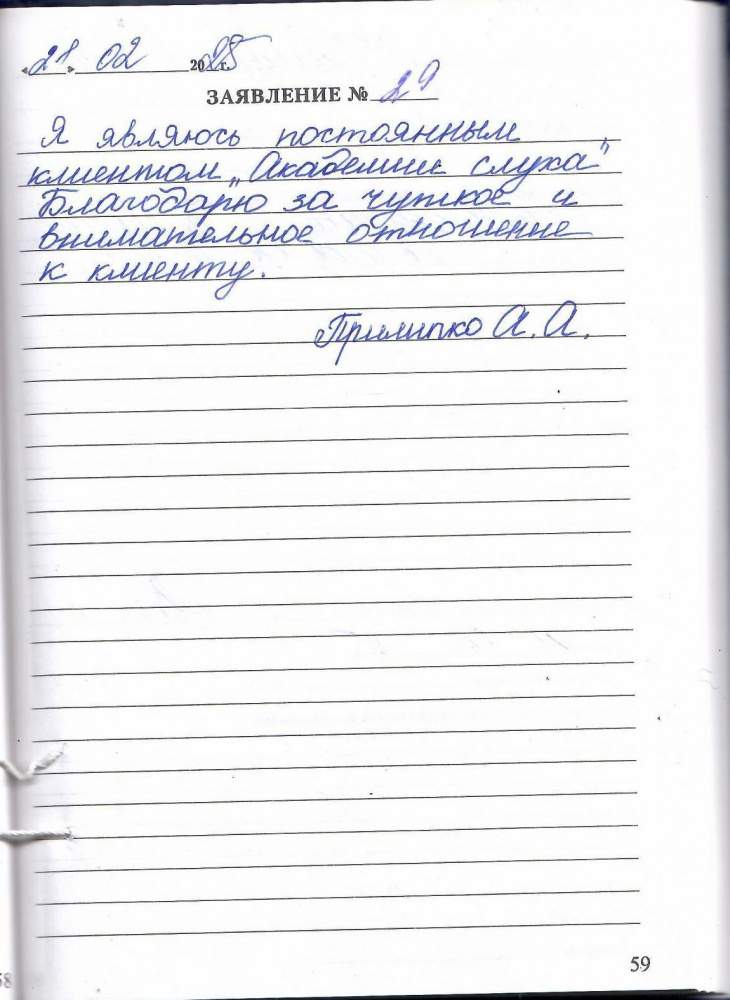 «21» 02 2025 г.
ЗАЯВЛЕНИЕ № 29
Я являюсь постоянным
клиентом „Академии слуха"
Благодарю за чуткое и
внимательное отношение
к клиенту.
Прилипко А. А.
59
58